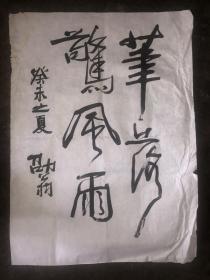 筆落
驚風雨
癸未之夏